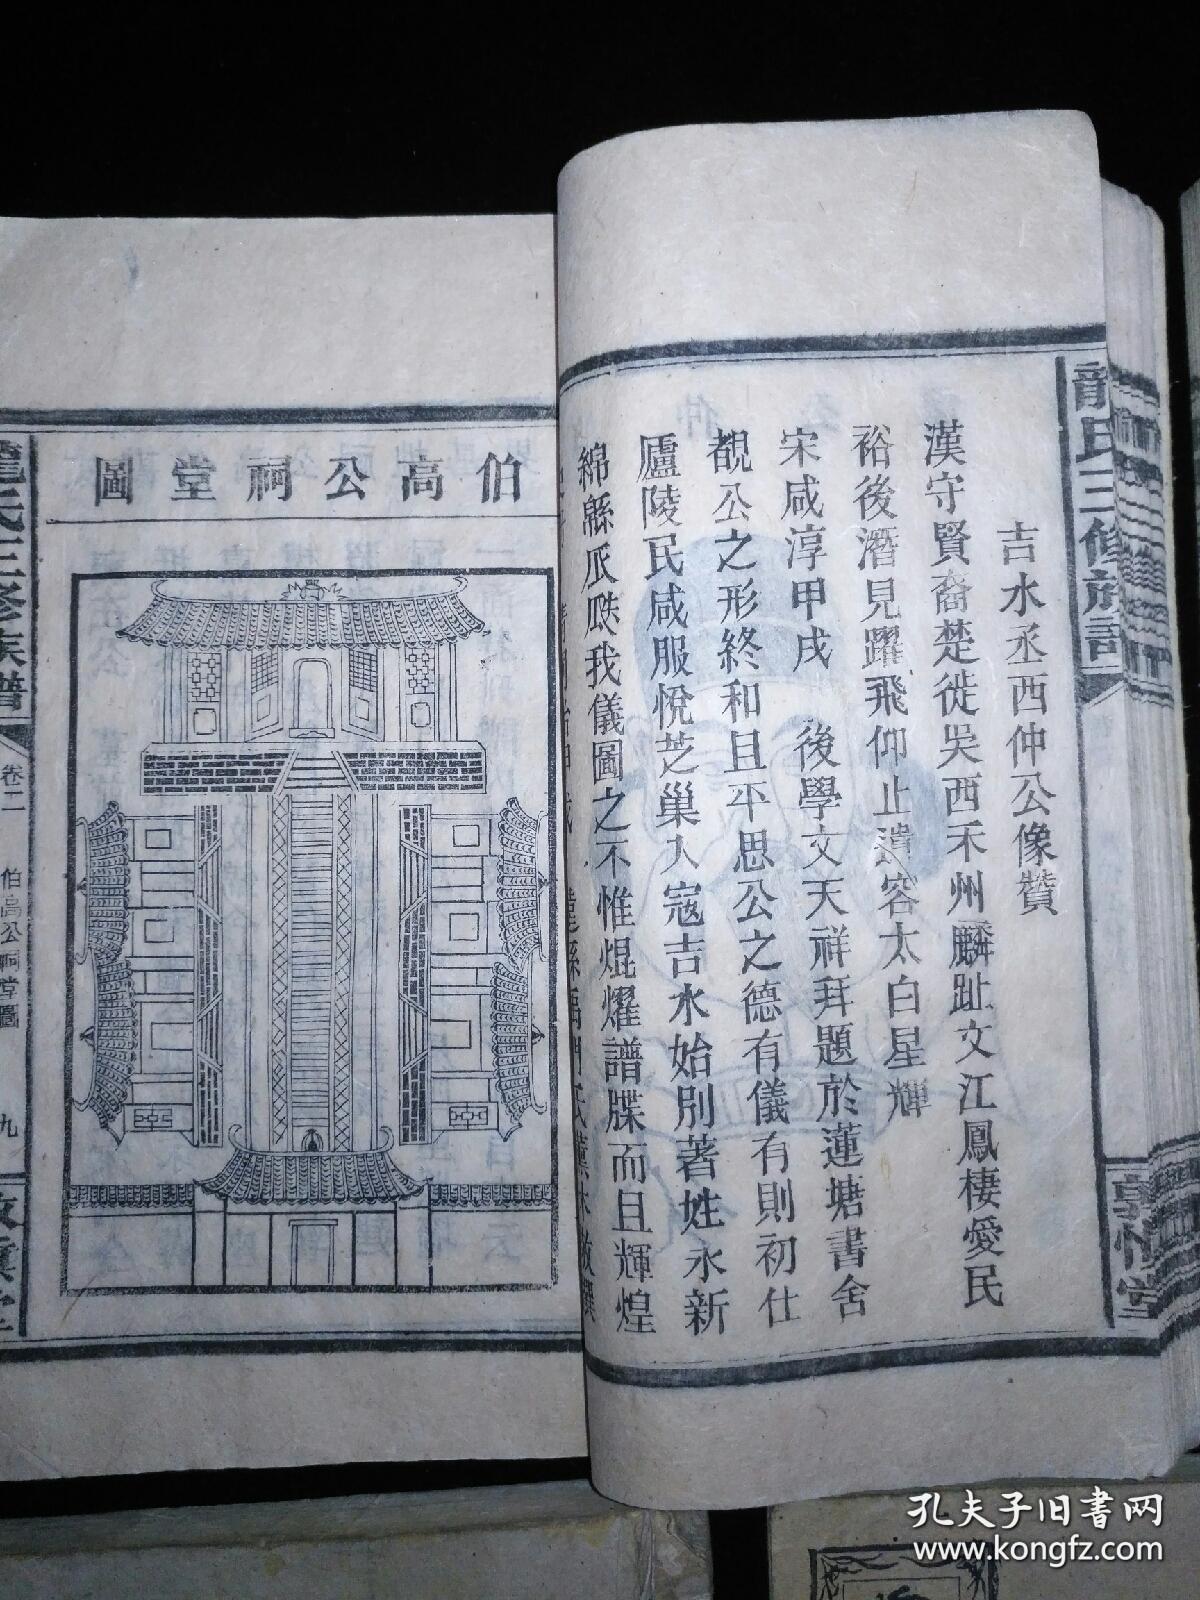 吉水丞西仲公像贊
漢守賢裔楚徙吳西禾州麟趾文江鳳棲愛民
裕後潛見躍飛仰止遺容太白星輝
宋咸淳甲戌　後學文天祥拜題於蓮塘書舍
覩公之形終和且平思公之德有儀有則初仕
廬陵民咸服悅芝巢人寇吉水始別著姓永新
綿緜瓜瓞我儀圖之不惟焜耀譜牒而且輝煌
龍氏三修族譜
敦惇堂
伯高公祠堂圖
龍氏三修族譜
卷二
伯高公祠堂圖
九
孔夫子旧书网
www.kongfz.com